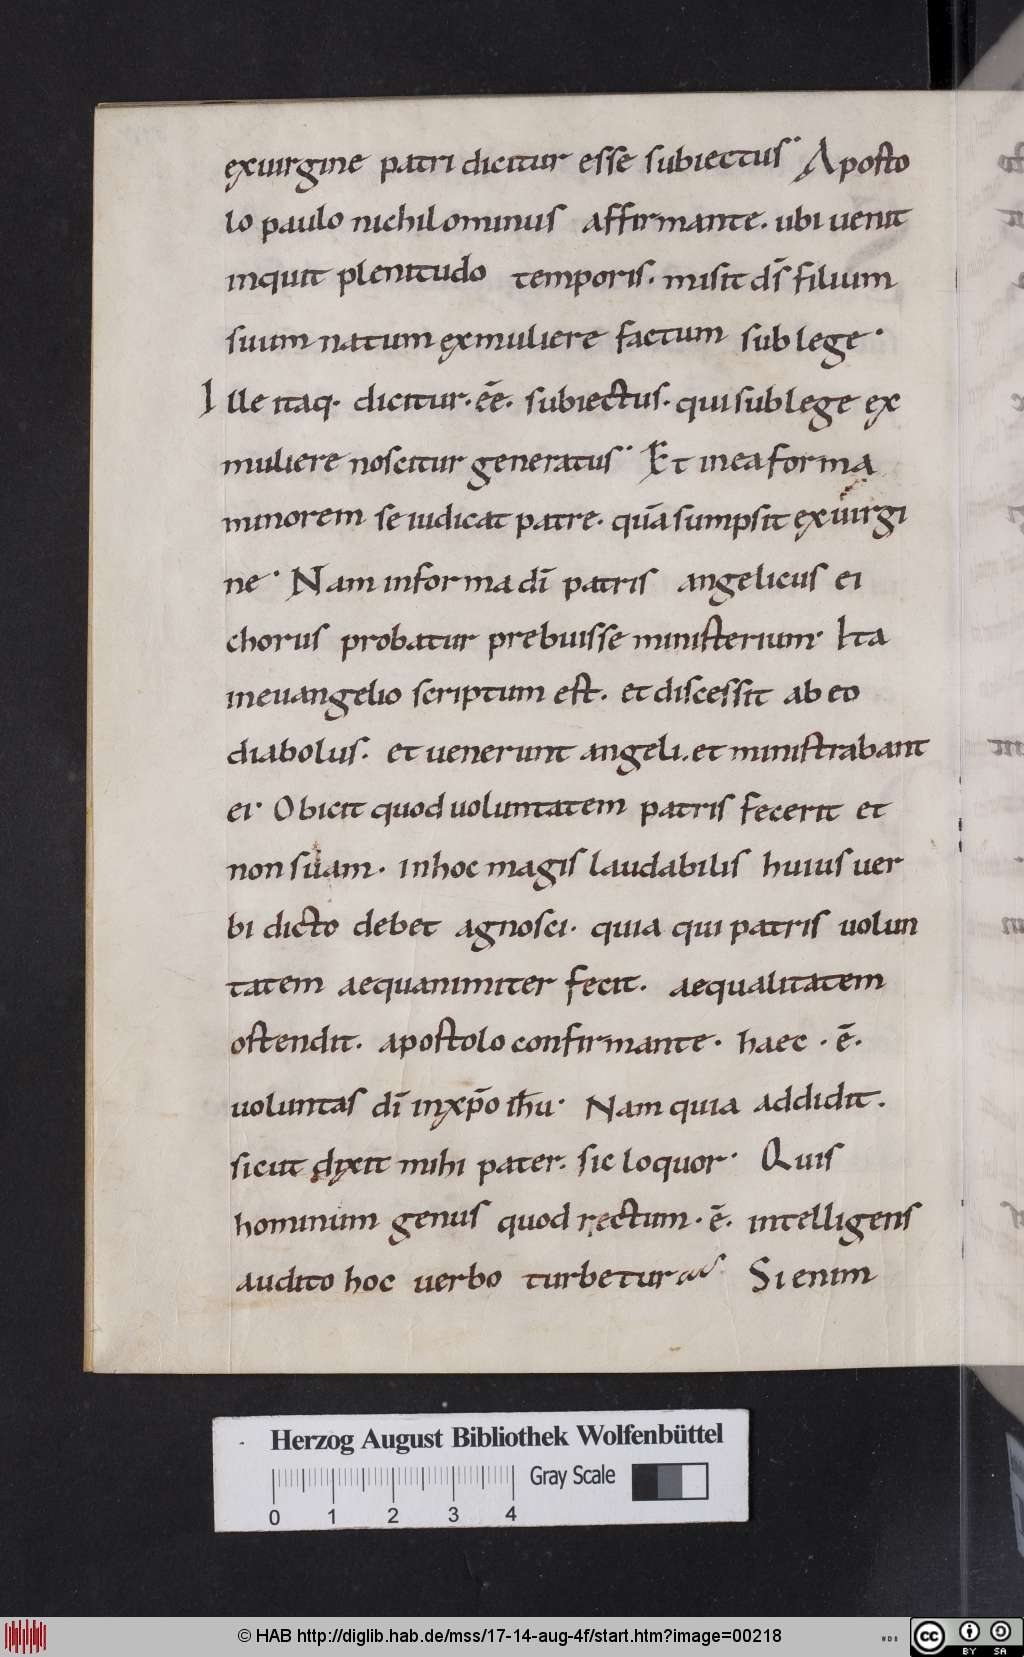 exuirgine patri dicitur esse subiectus· Aposto
lo paulo nichilominus affirmante. ubi uenit
inquit plenitudo temporis. misit dr̄s filium
suum natum exmuliere factum sub lege·
Ille itaq· dicitur. eē. subiectus. qui sub lege ex
muliere noscitur generatus· Et inea forma
minorem se iudicat patre. quā sumpsit exuirgi
ne· Nam informa dī patris angelicus ei
chorus probatur prebuisse ministerium· Ita
ineuangelio scriptum est. et discessit ab eo
diabolus. et uenerunt angeli. et ministrabant
ei· Obicit quod uoluntatem patris fecerit et
non suam. inhoc magis laudabilis huius uer
bi dicto debet agnosci. quia qui patris uolun
tatem aequanimiter fecit. aequalitatem
ostendit. apostolo confirmante. haec · ē.
uoluntas dī inxp̄o ih̄u· Nam quia addidit.
sicut dixit mihi pater. sic loquor· Quis
hominum genus quod rectum · ē. intelligens
audito hoc uerbo turbetur Si enim
Herzog August Bibliothek Wolfenbüttel
Gray Scale
0 1 2 3 4
© HAB http://diglib.hab.de/mss/17-14-aug-4f/start.htm?image=00218
WDB
cc BY SA